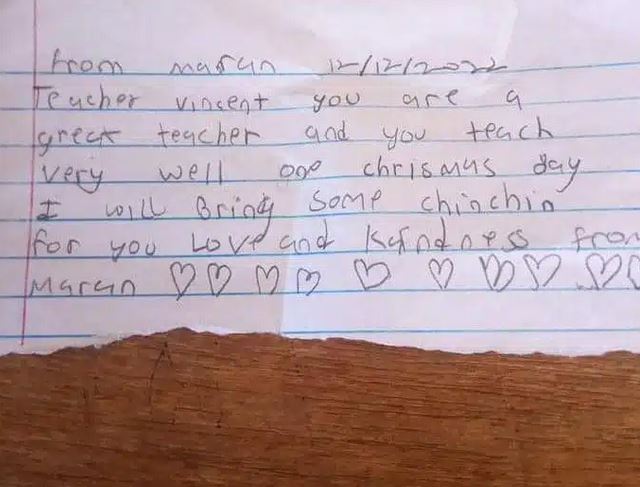 from maran 12/12/2022
Teacher vincent you are a
great teacher and you teach
very well one chrismus day
I will Bring some chinchin
for you Love and Kaindness from
Maran ♡♡♡♡♡♡♡♡♡♡